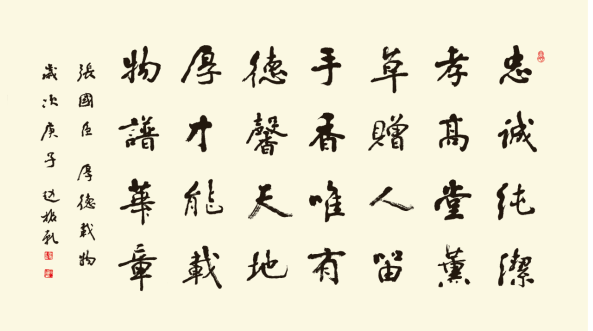 忠誠純潔
孝高堂薰
草贈人留
手香唯有
德馨天地
厚才能載
物譜華章
張國臣 厚德載物
歲次庚子